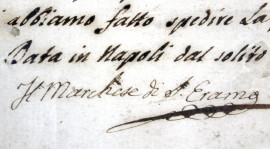 abbiamo fatto spedire La
Data in Napoli dal solito
Il Marchese di S. Eramo